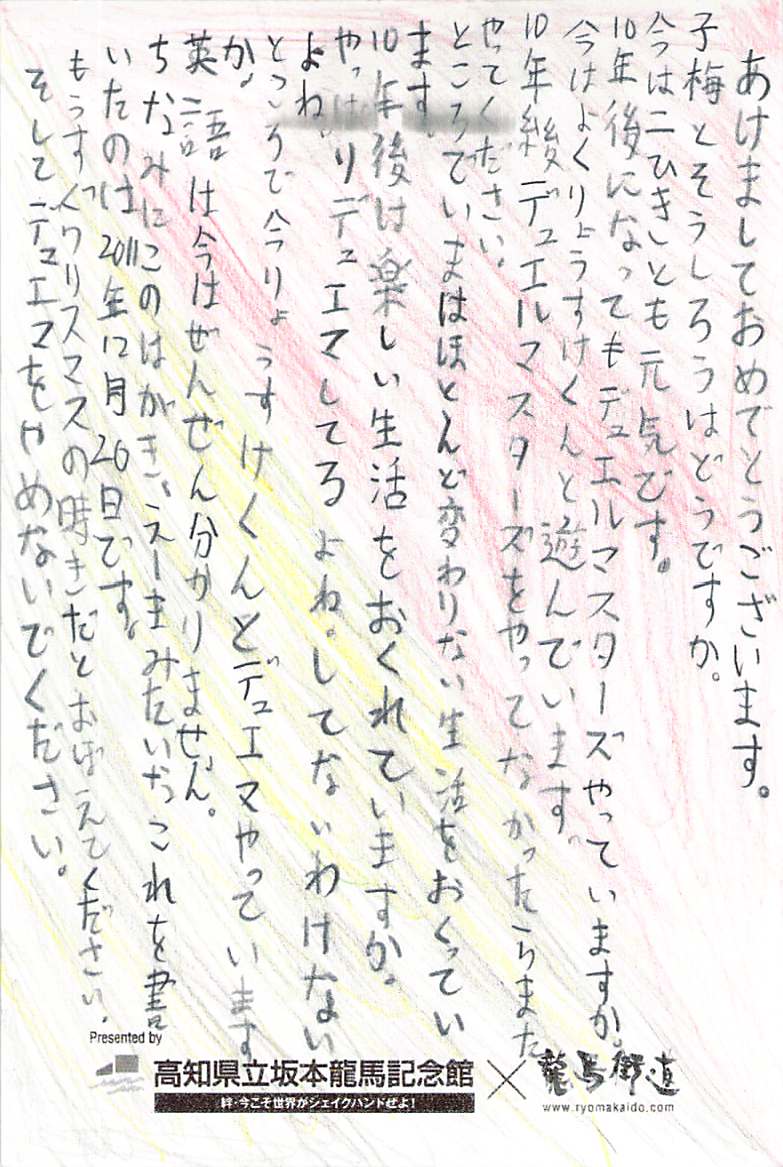 あけましておめでとうございます。
子梅とそうしろうはどうですか。
今は二ひきとも元気です。
10年後になってもデュエルマスターズやっていますか。
今はよくりょうすけくんと遊んでいます。
10年後デュエルマスターズをやってなかったらまた
やってください。
ところでいまはほとんど変わりない生活をおくってい
ます。
10年後は楽しい生活をおくれていますか。
やっぱりデュエマしてるよね。してないわけない
よね。
ところで今りょうすけくんとデュエマやっています
か。
英語は今はぜんぜん分かりません。
ちなみにこのはがき、えーまみたいだっこれを書
いたのは2011年12月26日です。
もうすぐクリスマスの時きだとおぼえてください。
そしてデュエマをやめないでください。
Presented by
高知県立坂本龍馬記念館×龍馬街道
絆・今こそ世界がシェイクハンドぜよ!
www.ryomakaido.com